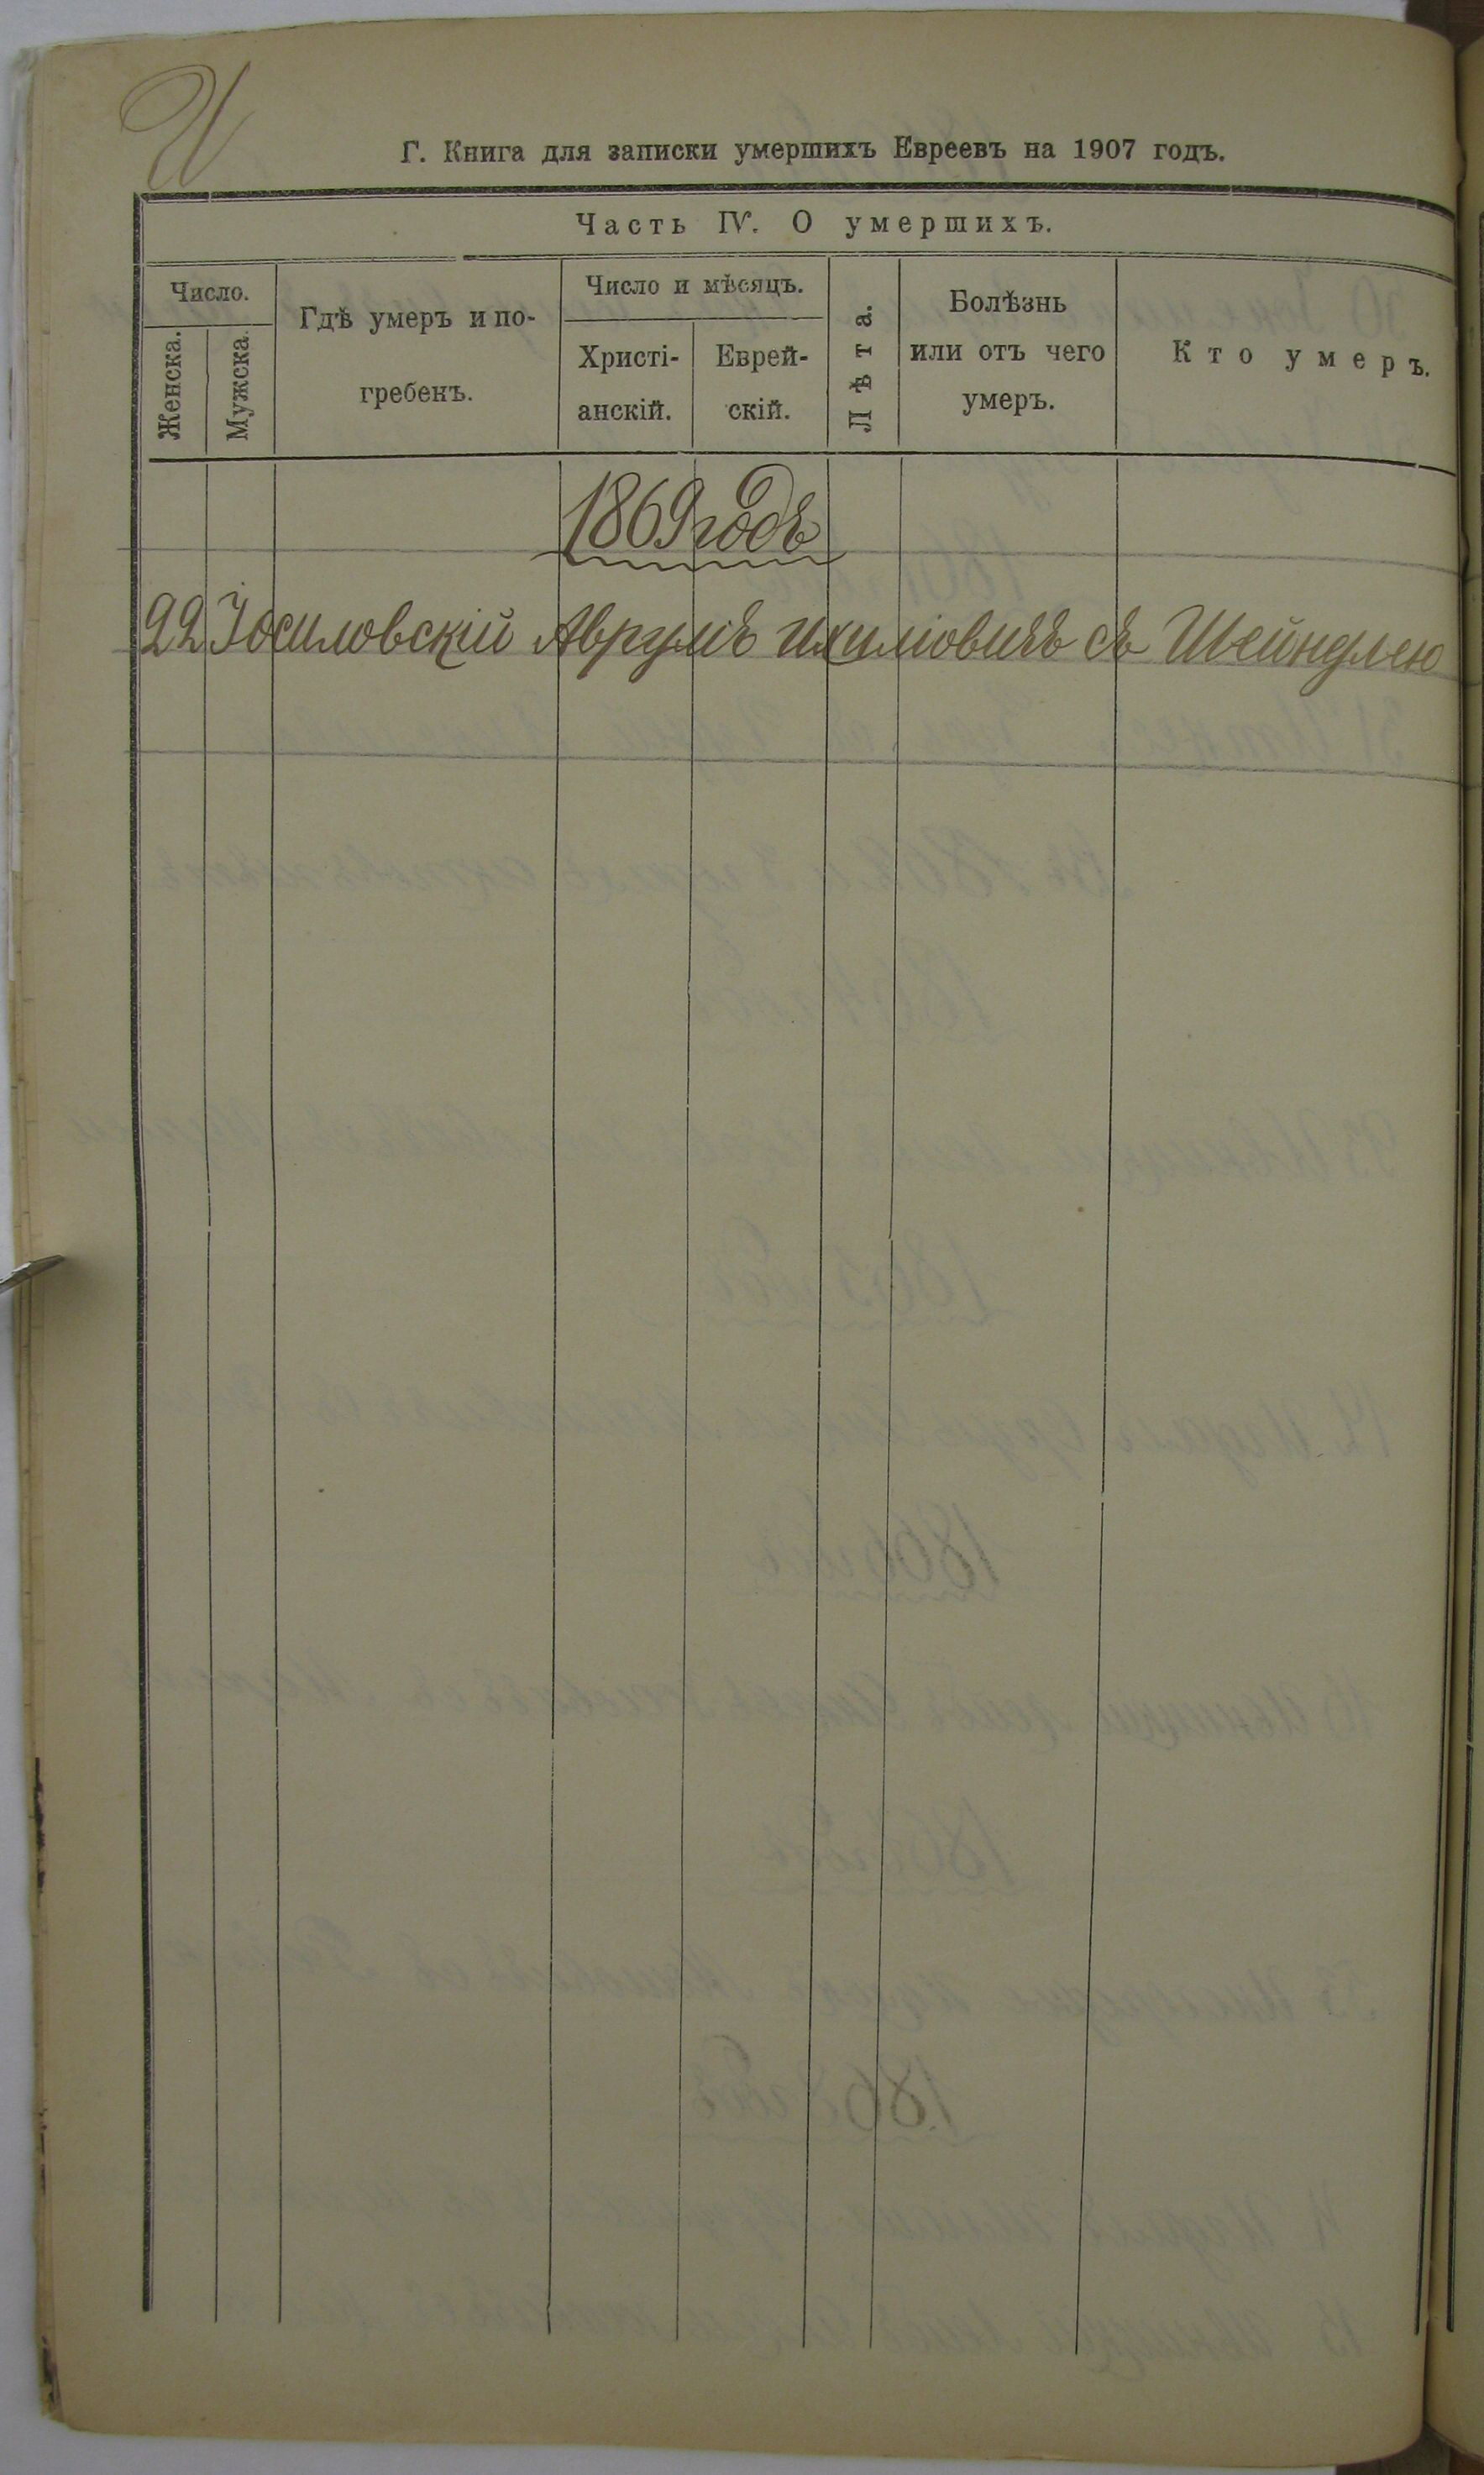 И
Г. Книга для записки умершихъ Евреевъ на 1907 годъ.
Часть IV. О умершихъ.
Число.
Женска.
Мужска.
Гдѣ умеръ и по-
гребенъ.
Число и мѣсяцъ.
Христі-
анскій.
Еврей-
скій.
Лѣта.
Болѣзнь
или отъ чего
умеръ.
Кто умеръ.
1869 годъ
22 Іосиловскій Аврумъ Ихиловичъ съ Шейндлею